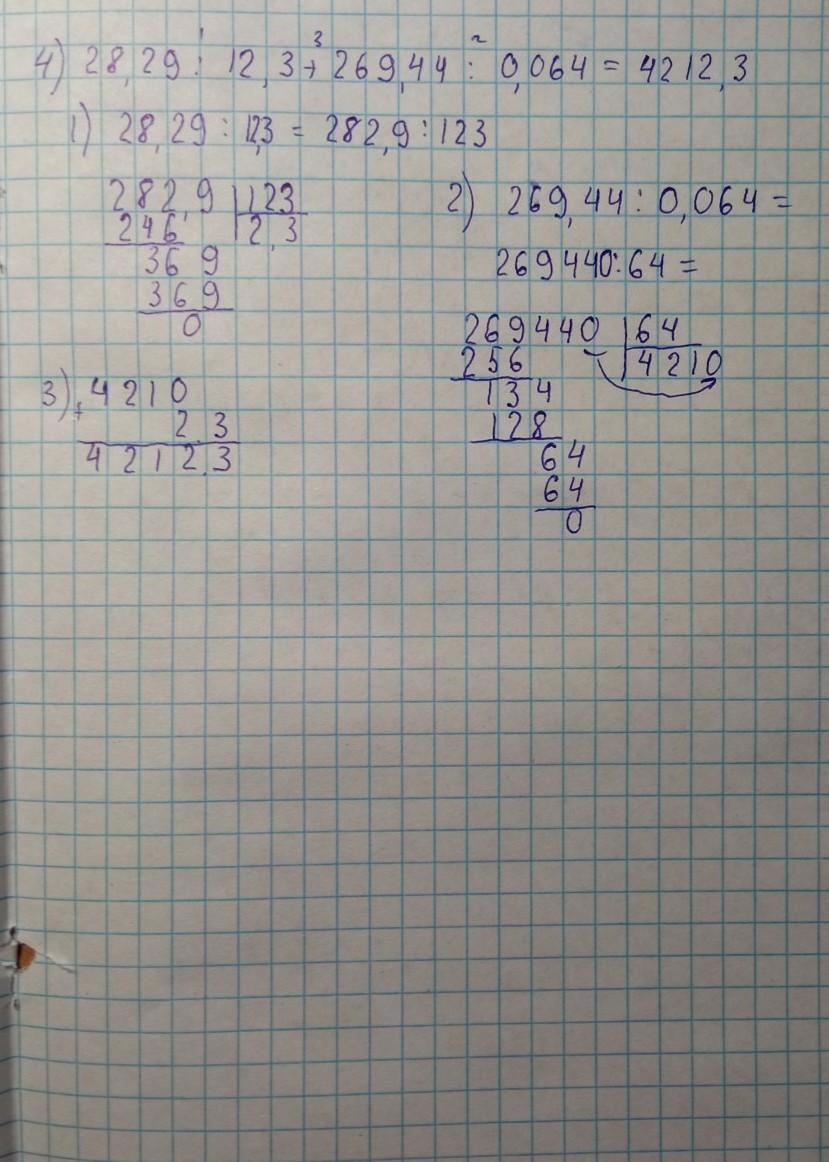 4) 28,29 : 12,3 + 269,44 : 0,064 = 4212,3
1 3 2
1) 28,29 : 12,3 = 282,9 : 123
282,9 | 123
246 | 2,3
369
369
0
2) 269,44 : 0,064 =
269440 : 64 =
269440 | 64
256 | 4210
134
128
64
64
0
3) + 4210
2,3
4212,3